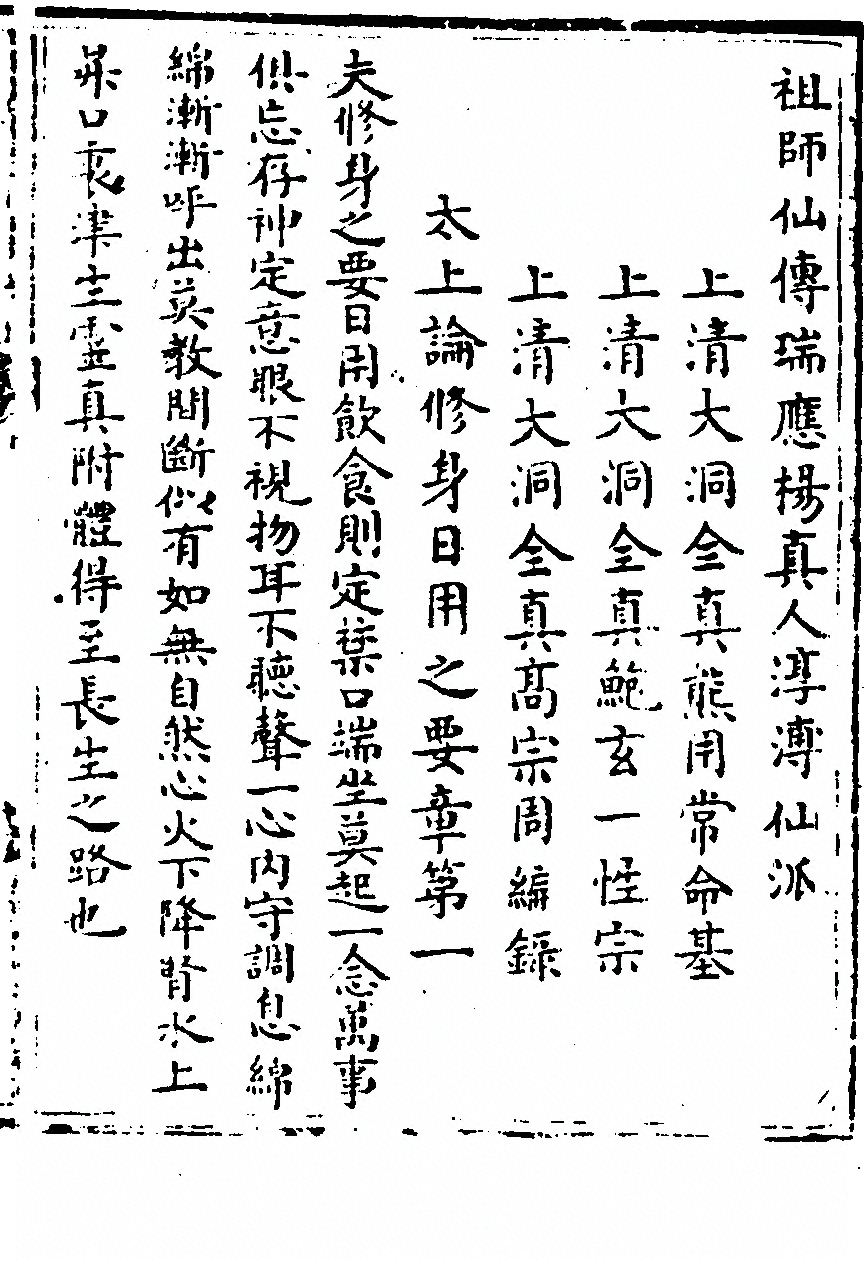 祖師仙傳瑞應楊真人淳溥仙派
上清大洞全真熊用常命基
上清大洞全真鮑玄一性宗
上清大洞全真髙宗周編錄
太上論修身日用之要章第一
夫修身之要日用飲食則定葉口端坐莫起一念萬事
俱忘存神定意眼不視物耳不聽聲一心内守調息綿
綿漸漸呼出莫教間斷似有如無自然心火下降腎水上
昇口裏津生靈真附體得至長生之路也